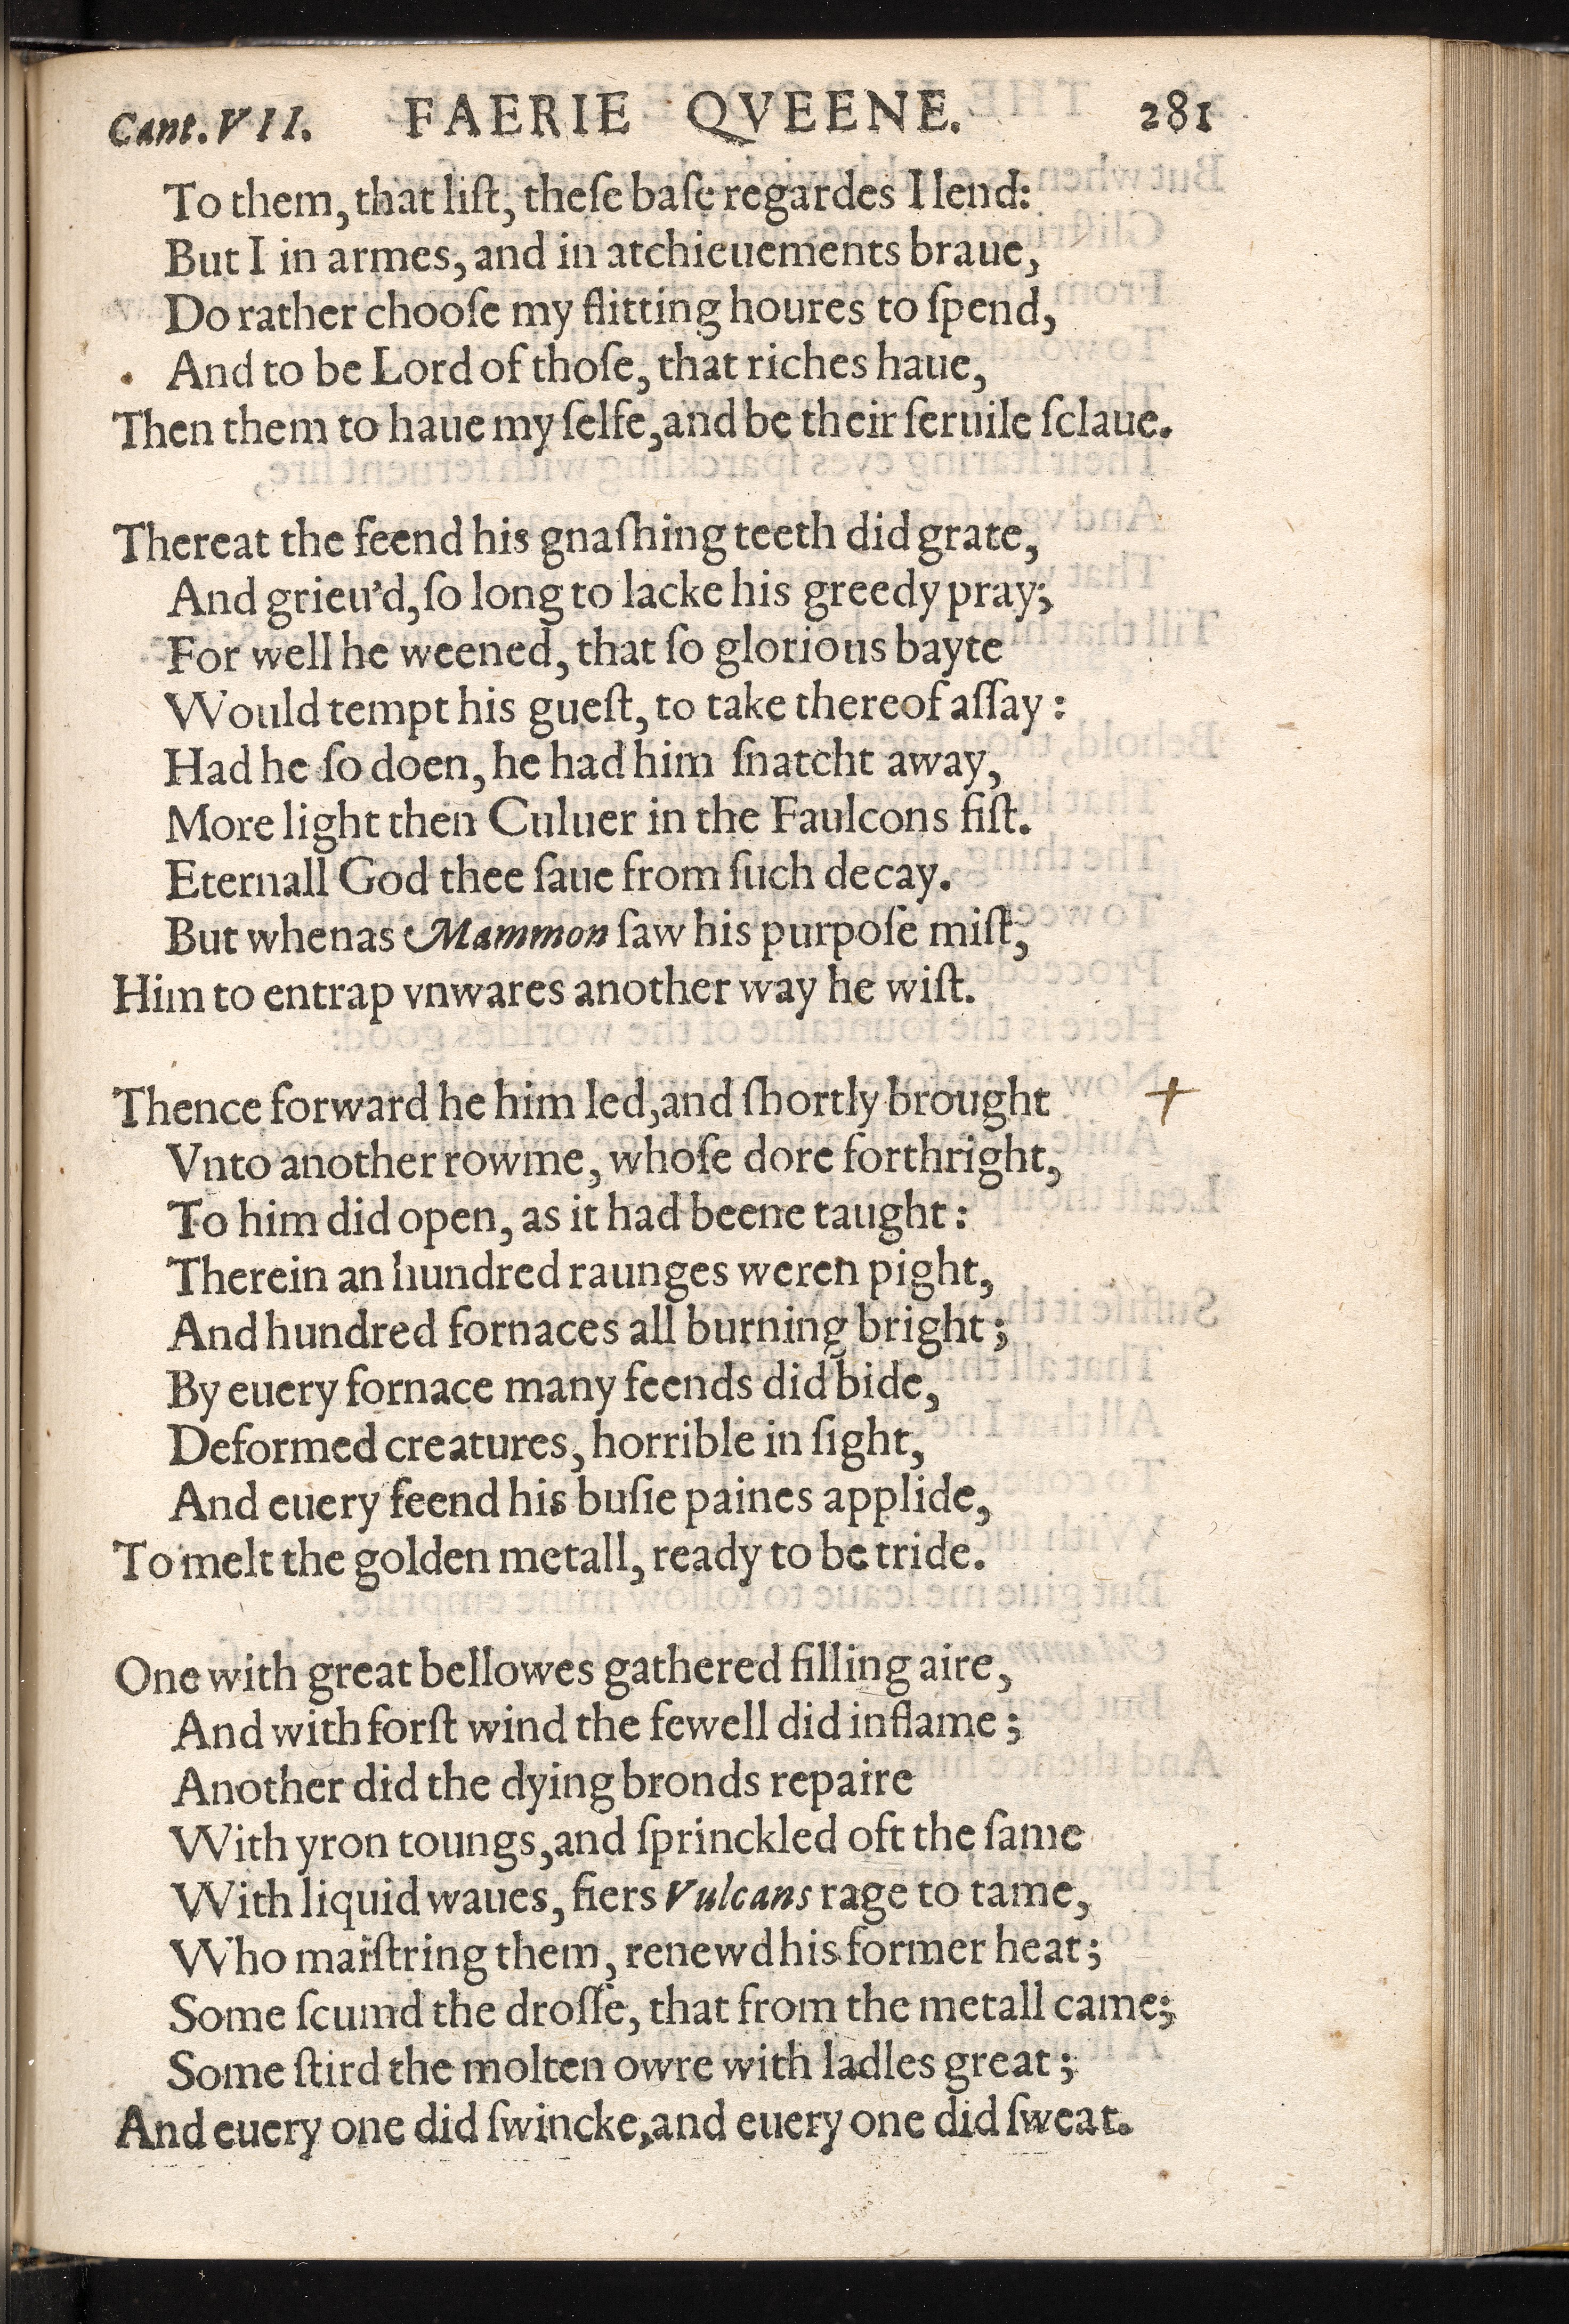 Cant. VII. FAERIE QVEENE. 281
To them, that liſt, theſe baſe regardes I lend:
But I in armes, and in atchieuements braue,
Do rather chooſe my flitting houres to ſpend,
And to be Lord of thoſe, that riches haue,
Then them to haue my ſelfe, and be their ſeruile ſclaue.
Thereat the feend his gnaſhing teeth did grate,
And grieu'd, ſo long to lacke his greedy pray;
For well he weened, that ſo glorious bayte
Would tempt his gueſt, to take thereof aſſay:
Had he ſo doen, he had him ſnatcht away,
More light then Culuer in the Faulcons fiſt.
Eternall God thee ſaue from ſuch decay.
But whenas Mammon ſaw his purpoſe miſt,
Him to entrap vnwares another way he wiſt.
Thence forward he him led, and ſhortly brought
Vnto another rowme, whoſe dore forthright,
To him did open, as it had beene taught:
Therein an hundred raunges weren pight,
And hundred fornaces all burning bright;
By euery fornace many feends did bide,
Deformed creatures, horrible in ſight,
And euery feend his buſie paines applide,
To melt the golden metall, ready to be tride.
One with great bellowes gathered filling aire,
And with forſt wind the fewell did inflame;
Another did the dying bronds repaire
With yron toungs, and ſprinckled oft the ſame
With liquid waues, fiers Vulcans rage to tame,
Who maiſtring them, renewd his former heat;
Some ſcumd the droſſe, that from the metall came;
Some ſtird the molten owre with ladles great;
And euery one did ſwincke, and euery one did ſweat.